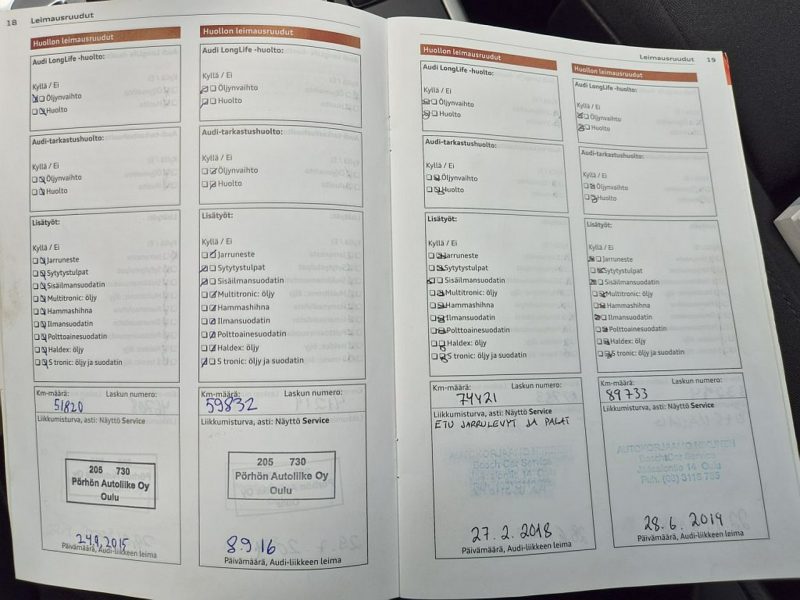 18 Leimausruudut
Huollon leimausruudut
Audi LongLife -huolto:
Kyllä / Ei
Öljynvaihto
Huolto
Audi-tarkastushuolto:
Kyllä / Ei
Öljynvaihto
Huolto
Lisätyöt:
Kyllä / Ei
Jarruneste
Sytytystulpat
Sisäilmansuodatin
Multitronic: öljy
Hammashihna
Ilmansuodatin
Polttoainesuodatin
Haldex: öljy
S tronic: öljy ja suodatin
Km-määrä: Laskun numero:
51820
Liikkumisturva, asti: Näyttö Service
205 730
Pörhön Autoliike Oy
Oulu
24.9.2015
Päivämäärä, Audi-liikkeen leima
Huollon leimausruudut
Audi LongLife -huolto:
Kyllä / Ei
Öljynvaihto
Huolto
Audi-tarkastushuolto:
Kyllä / Ei
Öljynvaihto
Huolto
Lisätyöt:
Kyllä / Ei
Jarruneste
Sytytystulpat
Sisäilmansuodatin
Multitronic: öljy
Hammashihna
Ilmansuodatin
Polttoainesuodatin
Haldex: öljy
S tronic: öljy ja suodatin
Km-määrä: Laskun numero:
59832
Liikkumisturva, asti: Näyttö Service
205 730
Pörhön Autoliike Oy
Oulu
8.9.16
Päivämäärä, Audi-liikkeen leima
Leimausruudut 19
Huollon leimausruudut
Audi LongLife -huolto:
Kyllä / Ei
Öljynvaihto
Huolto
Audi-tarkastushuolto:
Kyllä / Ei
Öljynvaihto
Huolto
Lisätyöt:
Kyllä / Ei
Jarruneste
Sytytystulpat
Sisäilmansuodatin
Multitronic: öljy
Hammashihna
Ilmansuodatin
Polttoainesuodatin
Haldex: öljy
S tronic: öljy ja suodatin
Km-määrä: Laskun numero:
74421
Liikkumisturva, asti: Näyttö Service
ETU JARRULEVYT JA PALAT
Bosch Car Service
27.2.2018
Päivämäärä, Audi-liikkeen leima
Huollon leimausruudut
Audi LongLife -huolto:
Kyllä / Ei
Öljynvaihto
Huolto
Audi-tarkastushuolto:
Kyllä / Ei
Öljynvaihto
Huolto
Lisätyöt:
Kyllä / Ei
Jarruneste
Sytytystulpat
Sisäilmansuodatin
Multitronic: öljy
Hammashihna
Ilmansuodatin
Polttoainesuodatin
Haldex: öljy
S tronic: öljy ja suodatin
Km-määrä: Laskun numero:
89733
Liikkumisturva, asti: Näyttö Service
Bosch Car Service
14 Oulu
28.6.2019
Päivämäärä, Audi-liikkeen leima